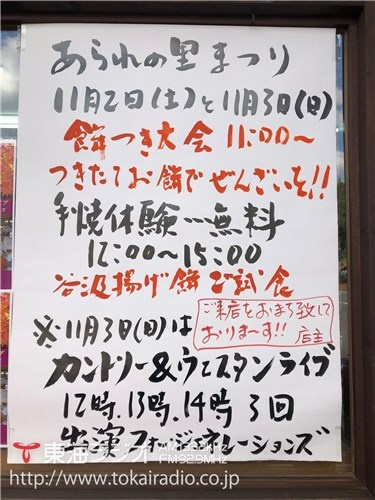 あられの里まつり
11月2日(土)と11月3日(日)
餅つき大会 11:00〜
つきたてお餅でぜんざいを!!
手焼体験…無料
12:00〜15:00
谷汲揚げ餅ご試食
ご来店をおまち致して
おりま〜す!! 店主
※11月3日(日)は
カントリー&ウエスタンライブ
12時.13時.14時 3回
出演フォージェネレーションズ
東海ラジオ
FM92.9MHz
http://www.tokairadio.co.jp